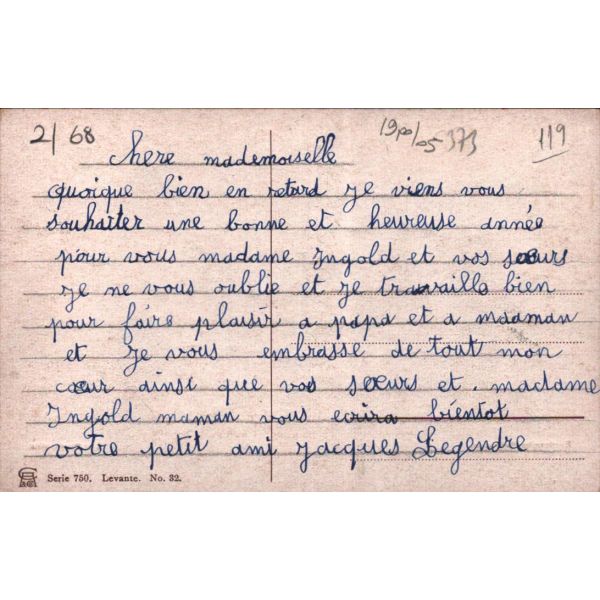 2/68
1900/05 373
119
chere mademoiselle
quoique bien en retard je viens vous
souhaiter une bonne et heureuse année
pour vous madame Ingold et vos sœurs
je ne vous oublie et je travaille bien
pour faire plaisir a papa et a maaman
et je vous embrasse de tout mon
cœur ainsi que vos sœurs et . madame
Ingold maman vous ecrira bientot
votre petit ami Jacques Legendre
Serie 750. Levante. No. 32.